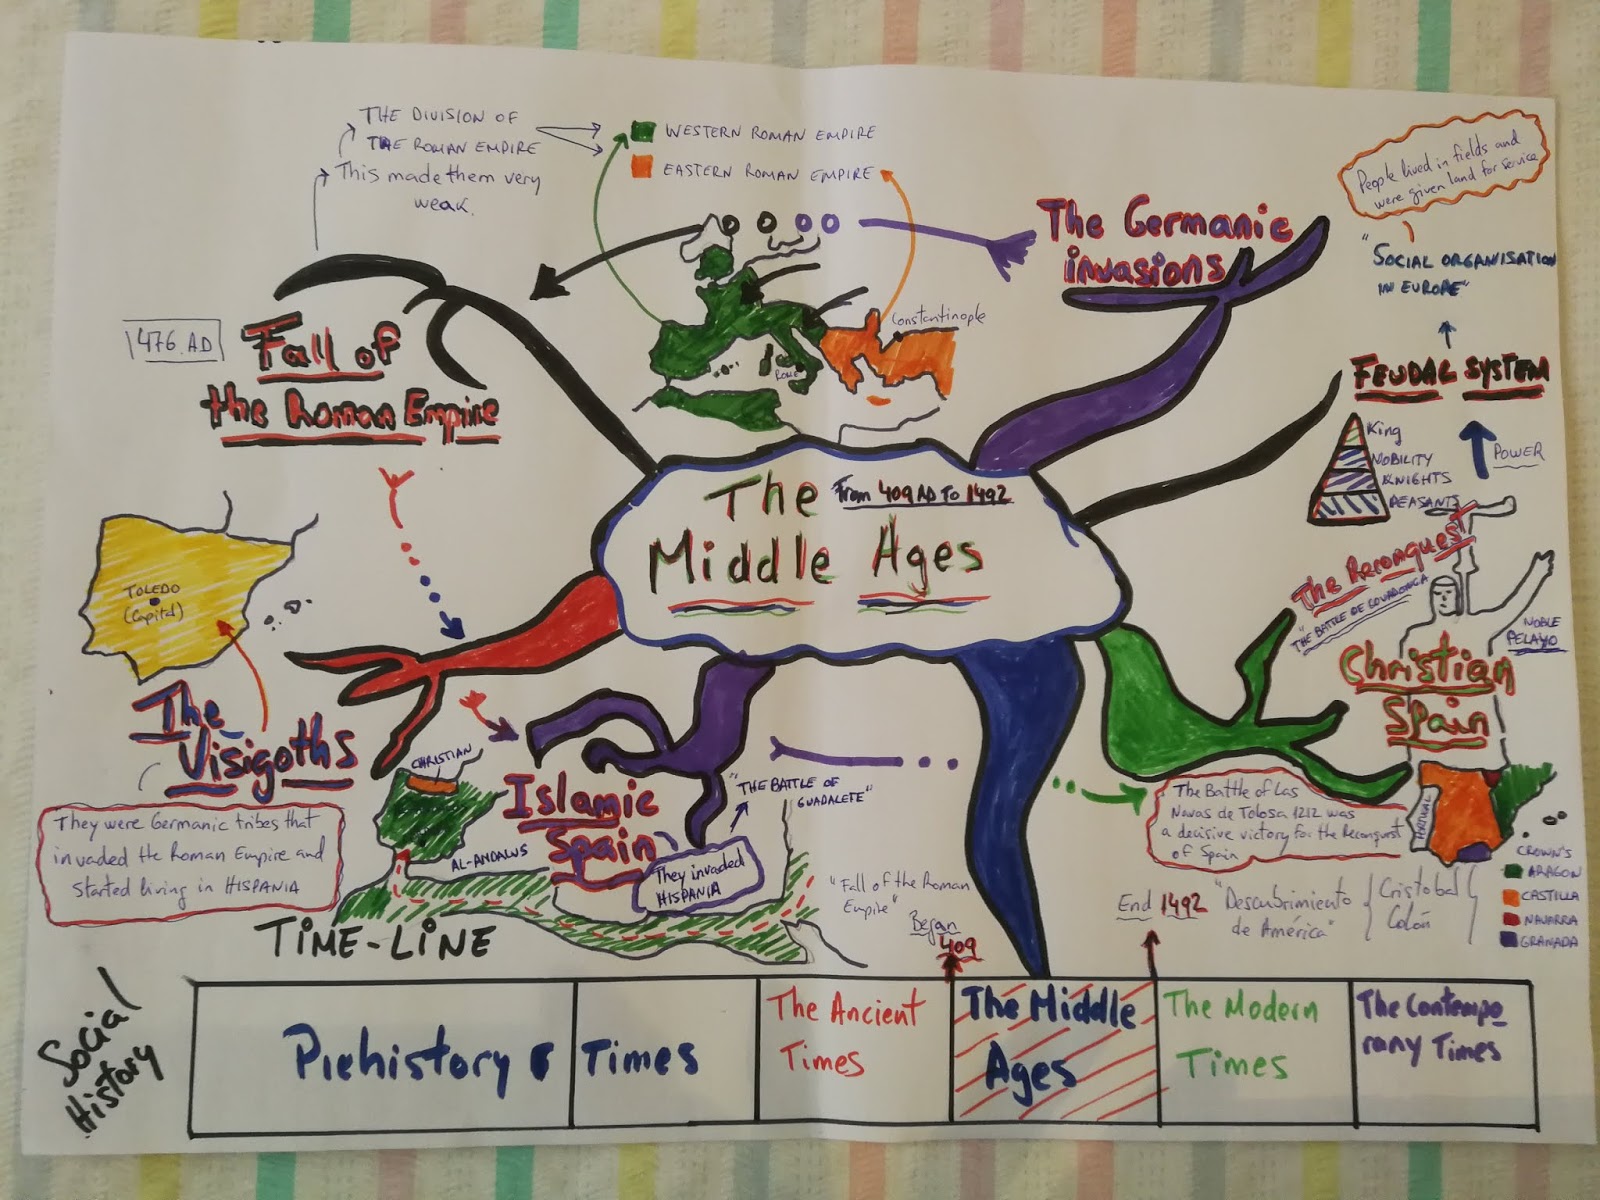 THE DIVISION OF
THE ROMAN EMPIRE
This made them very
weak.
WESTERN ROMAN EMPIRE
EASTERN ROMAN EMPIRE
The Germanic
invasions
People lived in fields and
were given land for service
"SOCIAL ORGANISATION
IN EUROPE"
FEUDAL SYSTEM
King
NOBILITY
KNIGHTS
PEASANTS
POWER
476 AD
Fall of
the Roman Empire
Constantinople
ROME
The From 409 AD TO 1492
Middle Ages
TOLEDO
(Capital)
The
Visigoths
They were Germanic tribes that
invaded the Roman Empire and
started living in HISPANIA
CHRISTIAN
AL-ANDALUS
Islamic
Spain
They invaded
HISPANIA
"THE BATTLE OF
GUADALETE"
The Reconquest
"THE BATTLE DE COVADONGA
NOBLE
PELAYO
Christian
Spain
The Battle of Las
Navas de Tolosa 1212 was
a decisive victory for the Reconquest
of Spain
PORTUGAL
CROWN'S
ARAGON
CASTILLA
NAVARRA
GRANADA
"Fall of the Roman
Empire"
Began
409
End 1492
"Descubrimiento
de América"
Cristobal
Colón
TIME-LINE
Social
History
Prehistory Times
The Ancient
Times
The Middle
Ages
The Modern
Times
The Contempo
rany Times